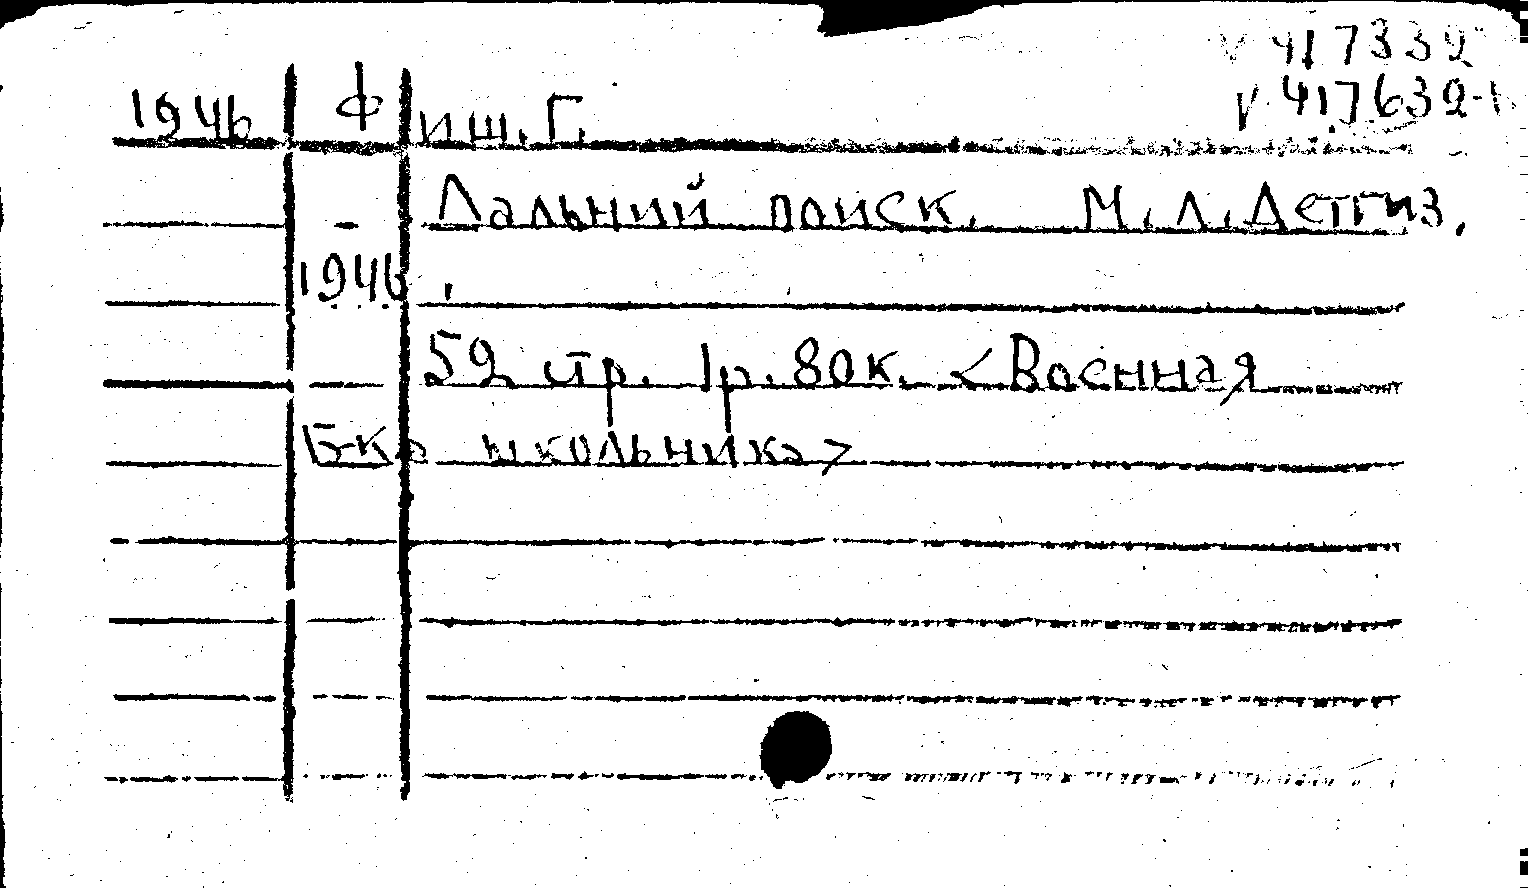 V 417332
V 417632-
1946 Фиш. Г.
Дальний поиск. М. Л. Детгиз.
1946.
52 стр. 1р. 80к. <Военная
Б-ка школьника>